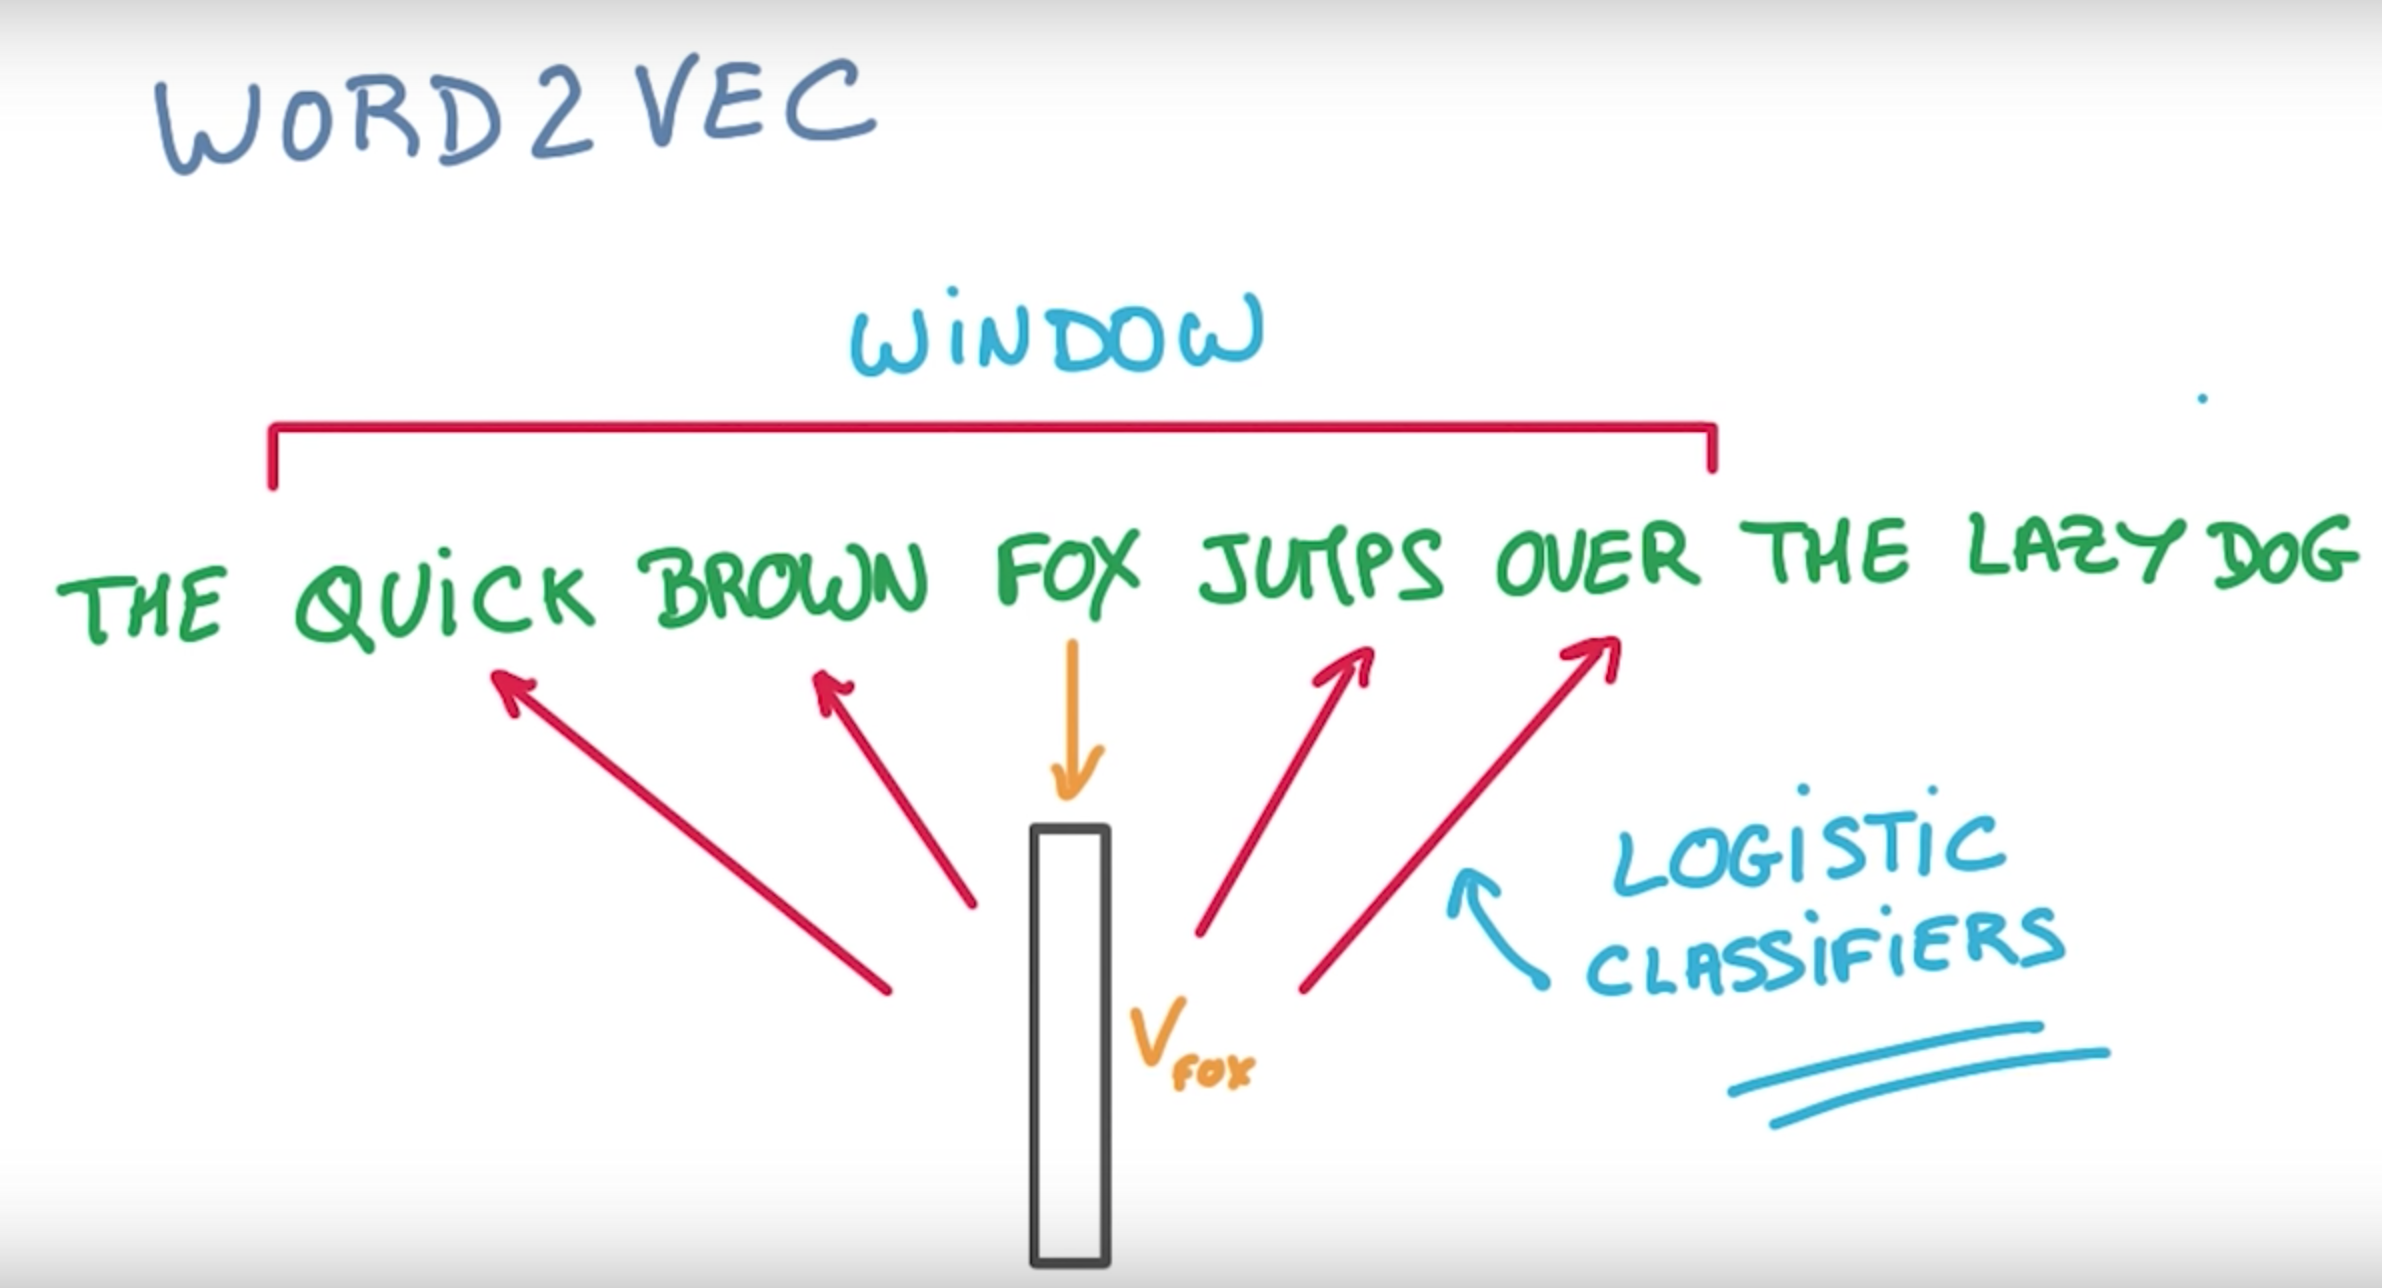 WORD2VEC
WiNDOW
THE QUiCK BROWN FOX JUMPS OVER THE LAZY DOG
LOGiSTiC
CLASSiFiERS
V FOX